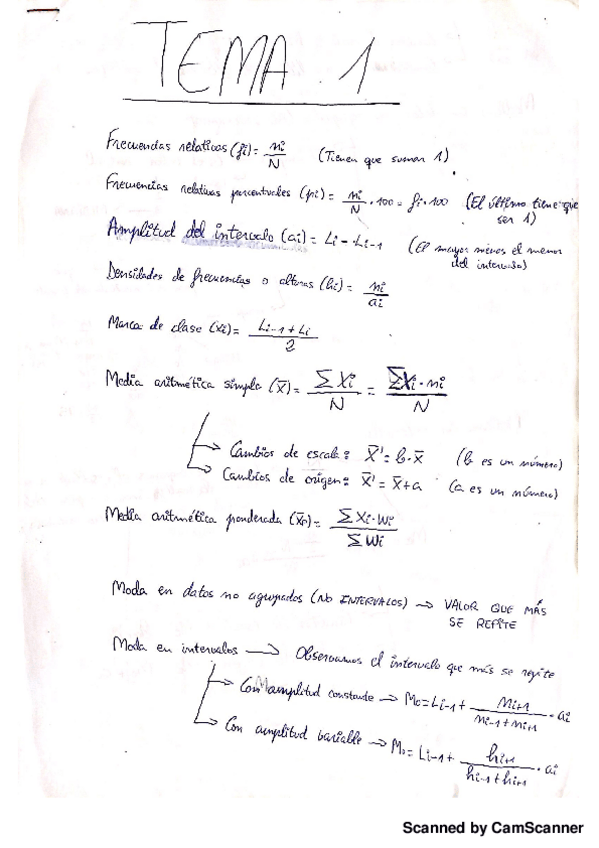 TEMA 1
Frecuencias relativas (fi) = ni/N (Tienen que sumar 1)
Frecuencias relativas porcentuales (pi) = ni/N · 100 = fi · 100 (El último tiene que
ser 1)
Amplitud del intervalo (ai) = Li - Li-1 (El mayor menos el menor
del intervalo)
Densidades de frecuencias o alturas (hi) = ni/ai
Marca de clase (xi) = Li-1 + Li / 2
Media aritmética simple (x̄) = ΣXi/N = ΣXi·ni/N
Cambios de escala: X̄' = b·x̄ (b es un número)
Cambios de origen: X̄' = x̄+a (a es un número)
Media aritmética ponderada (x̄p) = ΣXi·Wi / ΣWi
Moda en datos no agrupados (NO INTERVALOS) → VALOR QUE MÁS
SE REPITE
Moda en intervalos → Observamos el intervalo que más se repite
Con amplitud constante → Mo = Li-1 + ni+1 / ni-1 + ni+1 · ai
Con amplitud variable → Mo = Li-1 + hi+1 / hi-1 + hi+1 · ai
Scanned by CamScanner